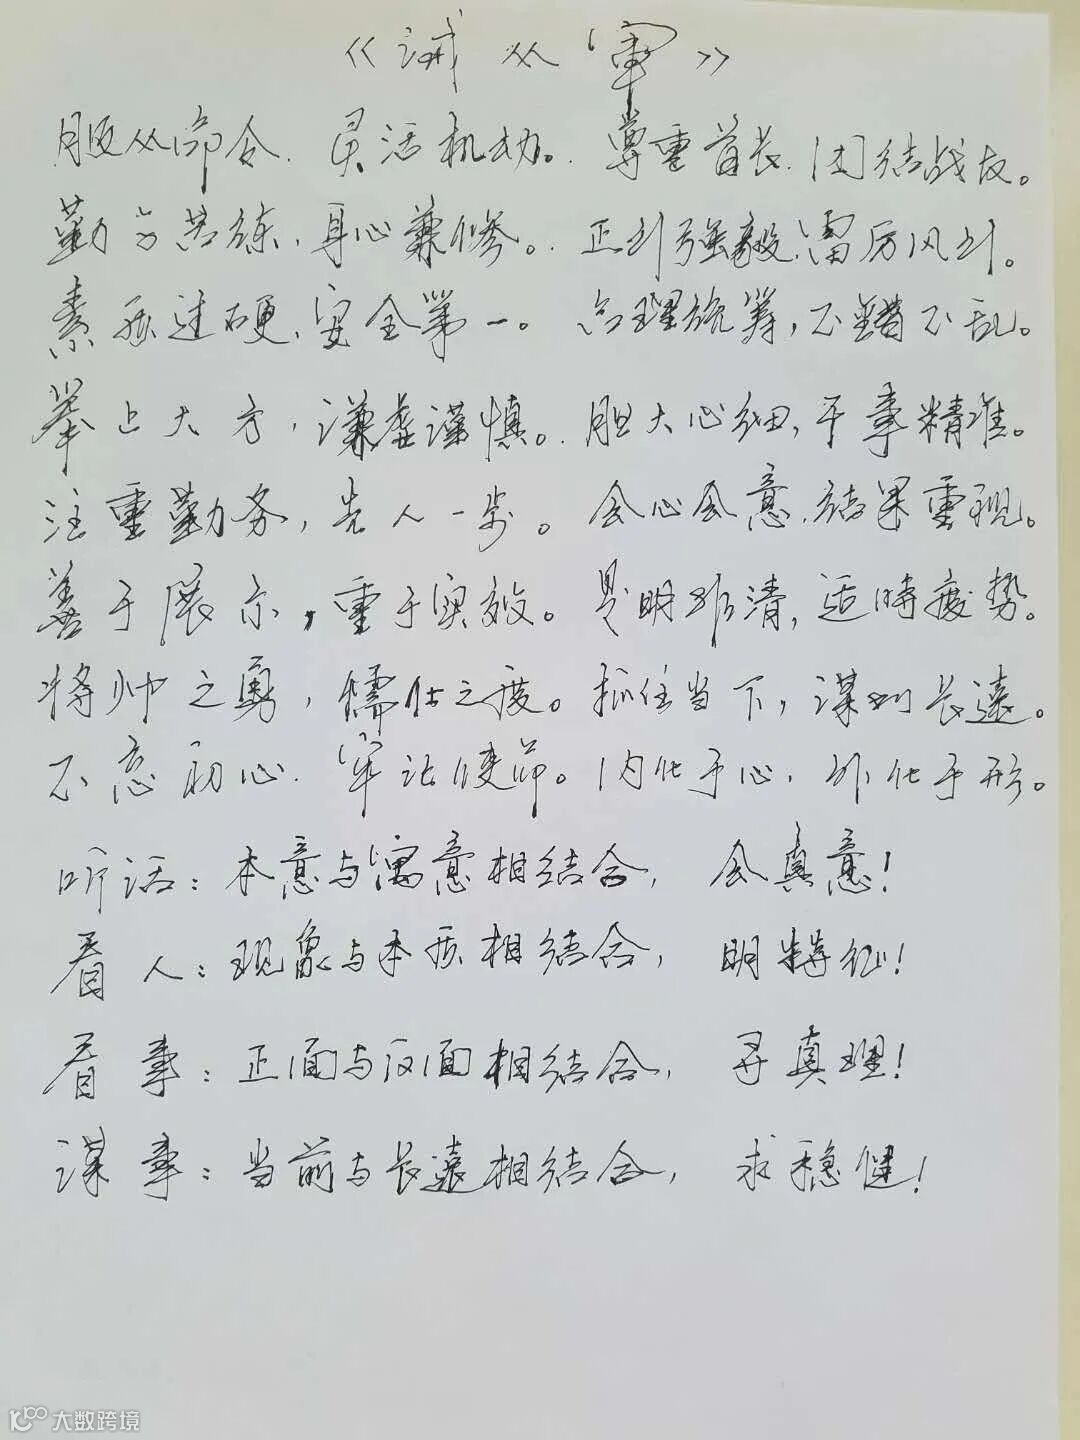 《诫从军》
服从命令、灵活机动。尊重首长、团结战友。
勤学苦练、身心兼修。正引强毅、雷厉风行。
素质过硬、安全第一。合理统筹，不错不乱。
举止大方，谦虚谨慎。胆大心细，干事精准。
注重勤务，先人一步。会心会意、结果重现。
善于展示，重于实效。是明非清，适时度势。
将帅之勇，儒仕之度。抓住当下，谋划长远。
不忘初心、牢记使命。内化于心、外化于形。
听话：本意与寓意相结合，会真意！
看人：现象与本质相结合，明特征！
看事：正面与反面相结合，寻真理！
谋事：当前与长远相结合，求稳健！
大数跨境